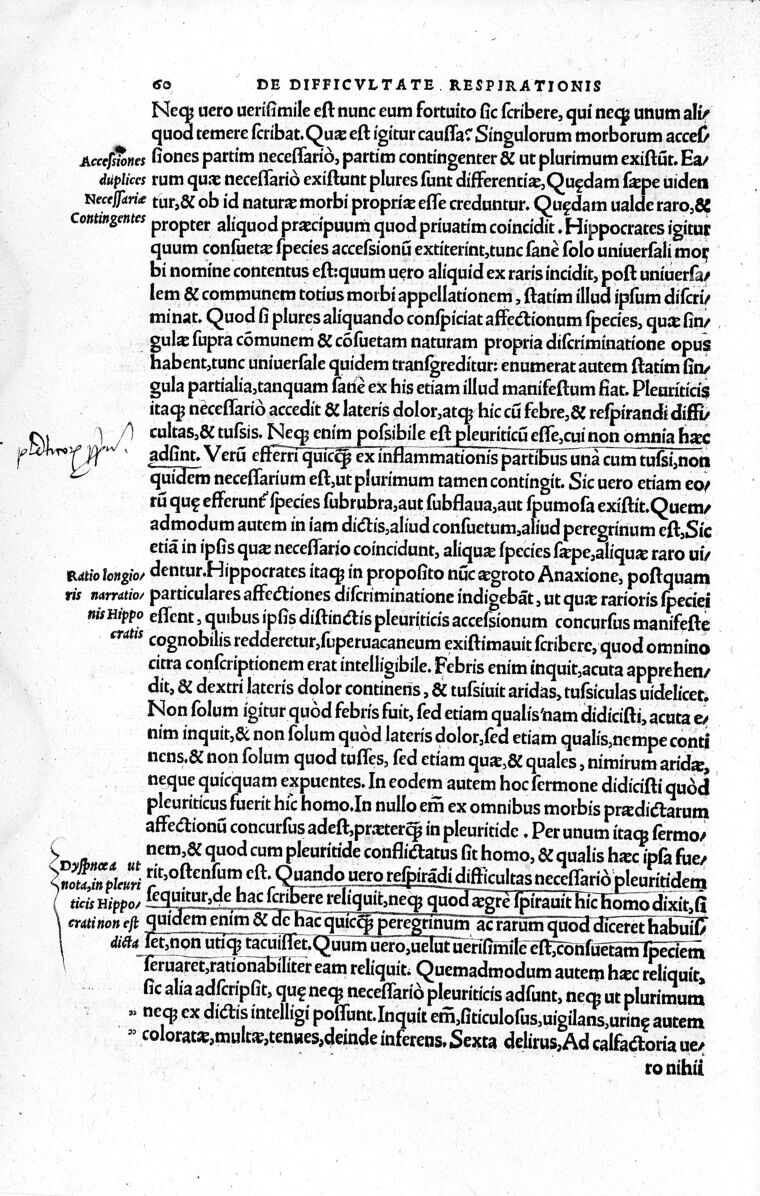 60 DE DIFFICVLTATE RESPIRATIONIS
Neqꝫ uero uerisimile est nunc eum fortuito sic scribere, qui neqꝫ unum ali/
quod temere scribat. Quæ est igitur caussa? Singulorum morborum acces/
siones partim necessariò, partim contingenter & ut plurimum existūt. Ea/
rum quæ necessariò existunt plures sunt differentiæ, Quędam sæpe uiden
tur, & ob id naturæ morbi propriæ esse creduntur. Quędam ualde raro, &
propter aliquod præcipuum quod priuatim coincidit. Hippocrates igitur
quum consuetæ species accessionū extiterint, tunc sanè solo uniuersali mor
bi nomine contentus est: quum uero aliquid ex raris incidit, post uniuersa/
lem & communem totius morbi appellationem, statim illud ipsum discri/
minat. Quod si plures aliquando conspiciat affectionum species, quæ sin/
gulæ supra cōmunem & cōsuetam naturam propria discriminatione opus
habent, tunc uniuersale quidem transgreditur: enumerat autem statim sin/
gula partialia, tanquam sanè ex his etiam illud manifestum fiat. Pleuriticis
itaqꝫ necessariò accedit & lateris dolor, atqꝫ hic cū febre, & respirandi diffi/
cultas, & tussis. Neqꝫ enim possibile est pleuriticū esse, cui non omnia hæc
adsint. Verū efferri quicꝗ̃ ex inflammationis partibus unà cum tussi, non
quidem necessarium est, ut plurimum tamen contingit. Sic uero etiam eo/
rū quę efferunt᷑ species subrubra, aut subflaua, aut spumosa existit. Quem/
admodum autem in iam dictis, aliud consuetum, aliud peregrinum est, Sic
etiā in ipsis quæ necessario coincidunt, aliquæ species sæpe, aliquæ raro ui/
dentur. Hippocrates itaqꝫ in proposito nūc ægroto Anaxione, postquam
particulares affectiones discriminatione indigebāt, ut quæ rarioris speciei
essent, quibus ipsis distinctis pleuriticis accessionum concursus manifeste
cognobilis redderetur, superuacaneum existimauit scribere, quod omnino
citra conscriptionem erat intelligibile. Febris enim inquit, acuta apprehen/
dit, & dextri lateris dolor continens, & tussiuit aridas, tussiculas uidelicet.
Non solum igitur quòd febris fuit, sed etiam qualis nam didicisti, acuta e/
nim inquit, & non solum quòd lateris dolor, sed etiam qualis, nempe conti
nens. & non solum quod tusses, sed etiam quæ, & quales, nimirum aridæ,
neque quicquam expuentes. In eodem autem hoc sermone didicisti quòd
pleuriticus fuerit hic homo. In nullo em̄ ex omnibus morbis prædictarum
affectionū concursus adest, præterꝗ̃ in pleuritide. Per unum itaqꝫ sermo/
nem, & quod cum pleuritide conflictatus sit homo, & qualis hæc ipsa fue/
rit, ostensum est. Quando uero respirādi difficultas necessariò pleuritidem
sequitur, de hac scribere reliquit, neqꝫ quod ægrè spirauit hic homo dixit, si
quidem enim & de hac quicꝗ̃ peregrinum ac rarum quod diceret habuis/
set, non utiqꝫ tacuisset. Quum uero, uelut uerisimile est, consuetam speciem
seruaret, rationabiliter eam reliquit. Quemadmodum autem hæc reliquit,
sic alia adscripsit, quę neqꝫ necessariò pleuriticis adsunt, neqꝫ ut plurimum
„ neqꝫ ex dictis intelligi possunt. Inquit em̄, siticulosus, uigilans, urinę autem
„ coloratæ, multæ, tenues, deinde inferens. Sexta delirus, Ad calfactoria ue/
ro nihil
Accessiones
duplices
Necessariæ
Contingentes
Ratio longio/
ris narratio/
nis Hippo
cratis
Dyspnœa ut
nota, in pleuri
ticis Hippo/
crati non est
dicta